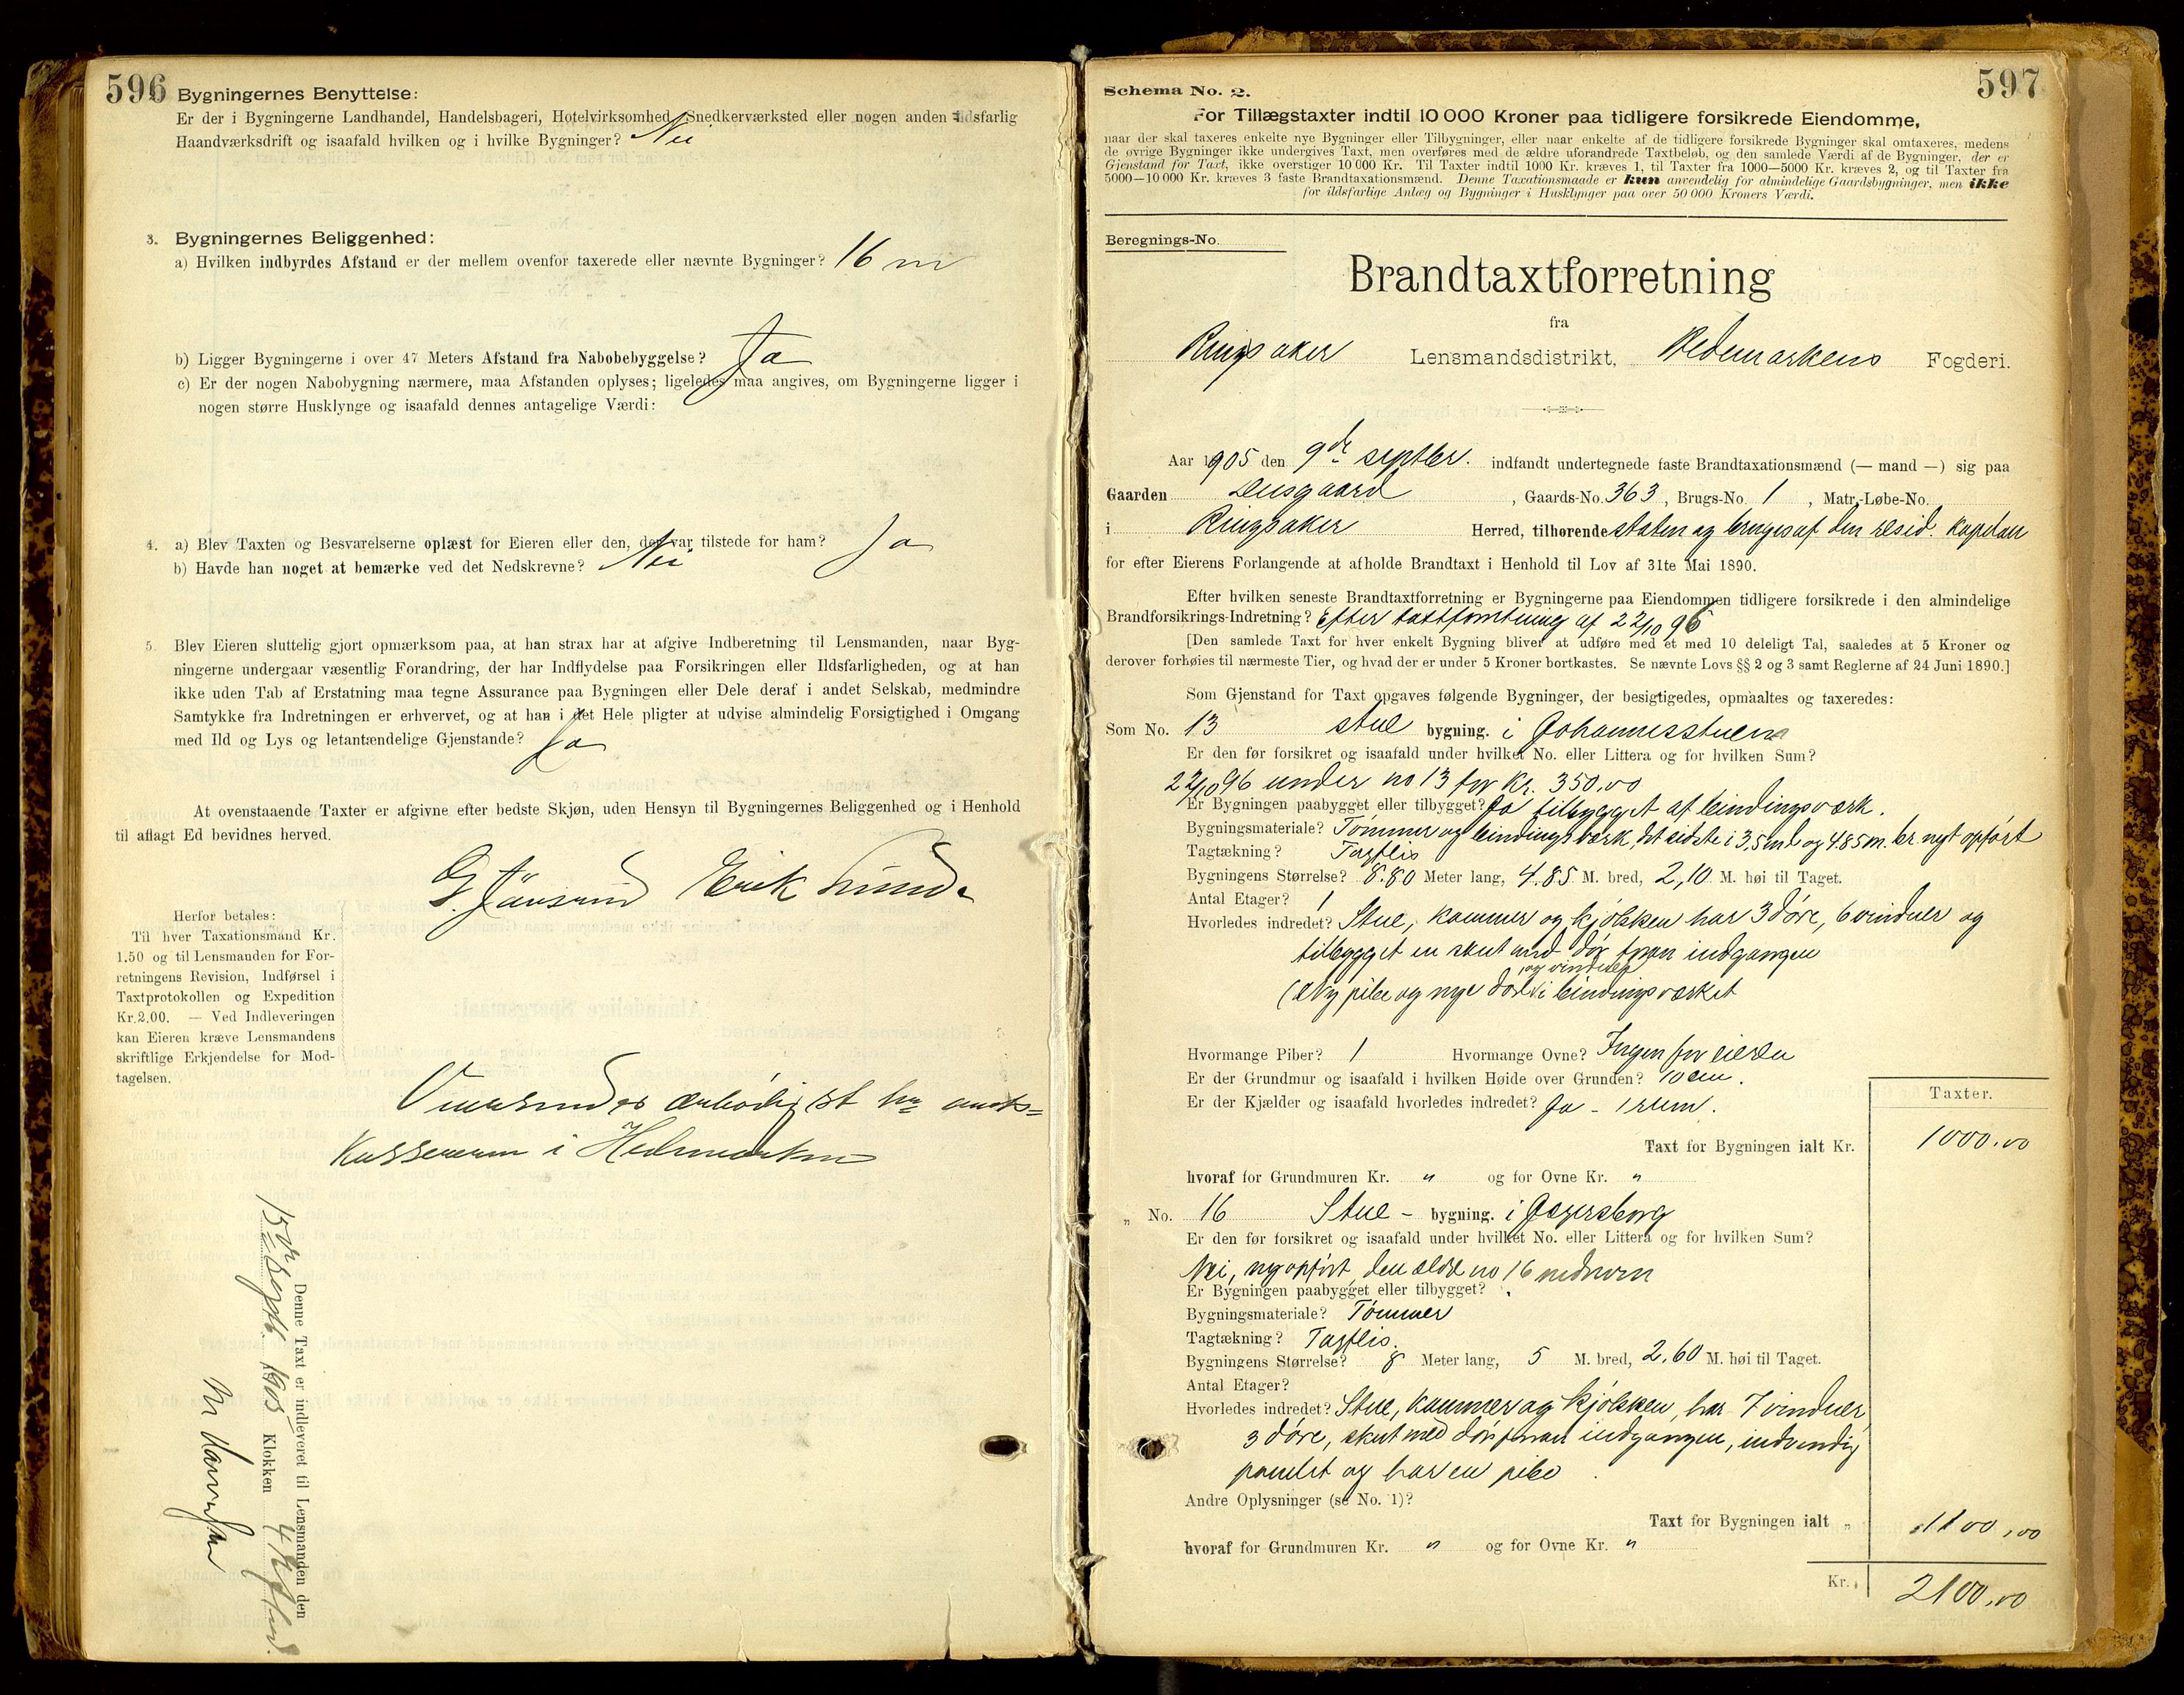 596
Bygningernes Benyttelse:
Er der i Bygningerne Landhandel, Handelsbageri, Hotelvirksomhed, Snedkerværksted eller nogen anden ildsfarlig
Haandværksdrift og isaafald hvilken og i hvilke Bygninger? Nei
3. Bygningernes Beliggenhed:
a) Hvilken indbyrdes Afstand er der mellem ovenfor taxerede eller nævnte Bygninger? 16 m
b) Ligger Bygningerne i over 47 Meters Afstand fra Nabobebyggelse? Ja
c) Er der nogen Nabobygning nærmere, maa Afstanden oplyses; ligeledes maa angives, om Bygningerne ligger i
nogen større Husklynge og isaafald dennes antagelige Værdi:
4. a) Blev Taxten og Besvarelserne oplæst for Eieren eller den, der var tilstede for ham? Ja
b) Havde han noget at bemærke ved det Nedskrevne? Nei
5. Blev Eieren sluttelig gjort opmærksom paa, at han strax har at afgive Indberetning til Lensmanden, naar Byg-
ningerne undergaar væsentlig Forandring, der har Indflydelse paa Forsikringen eller Ildsfarligheden, og at han
ikke uden Tab af Erstatning maa tegne Assurance paa Bygningen eller Dele deraf i andet Selskab, medmindre
Samtykke fra Indretningen er erhvervet, og at han i det Hele pligter at udvise almindelig Forsigtighed i Omgang
med Ild og Lys og letantændelige Gjenstande? Ja
At ovenstaaende Taxter er afgivne efter bedste Skjøn, uden Hensyn til Bygningernes Beliggenhed og i Henhold
til aflagt Ed bevidnes herved.
G. Erik Lunde
Herfor betales:
Til hver Taxationsmand Kr.
1.50 og til Lensmanden for For-
retningens Revision, Indførsel i
Taxtprotokollen og Expedition
Kr. 2.00. — Ved Indleveringen
kan Eieren kræve Lensmandens
skriftlige Erkjendelse for Mod-
tagelsen.
ærbødigst hr amts-
kassereren i Hedemarken
Denne Taxt er indleveret til Lensmanden den
15de Septb. 1905 Klokken 4
597
Schema No. 2.
For Tillægstaxter indtil 10 000 Kroner paa tidligere forsikrede Eiendomme,
naar der skal taxeres enkelte nye Bygninger eller Tilbygninger, eller naar enkelte af de tidligere forsikrede Bygninger skal omtaxeres, medens
de øvrige Bygninger ikke undergives Taxt, men overføres med de ældre uforandrede Taxtbeløb, og den samlede Værdi af de Bygninger, der er
Gjenstand for Taxt, ikke overstiger 10 000 Kr. Til Taxter indtil 1000 Kr. kræves 1, til Taxter fra 1000—5000 Kr. kræves 2, og til Taxter fra
5000—10 000 Kr. kræves 3 faste Brandtaxationsmænd. Denne Taxationsmaade er kun anvendelig for almindelige Gaardsbygninger, men ikke
for ildsfarlige Anlæg og Bygninger i Husklynger paa over 50 000 Kroners Værdi.
Beregnings-No.
Brandtaxtforretning
fra
Ringsaker Lensmandsdistrikt, Hedemarkens Fogderi.
Aar 1905 den 9de septbr. indfandt undertegnede faste Brandtaxationsmænd (— mand —) sig paa
Gaarden , Gaards-No. 363, Brugs-No. 1, Matr.-Løbe-No.
i Ringsaker Herred, tilhørende staten og bruges af den resid. kapelan
for efter Eierens Forlangende at afholde Brandtaxt i Henhold til Lov af 31te Mai 1890.
Efter hvilken seneste Brandtaxtforretning er Bygningerne paa Eiendommen tidligere forsikrede i den almindelige
Brandforsikrings-Indretning? Efter taxtforretning af 22/10 96
[Den samlede Taxt for hver enkelt Bygning bliver at udføre med et med 10 deleligt Tal, saaledes at 5 Kroner og
derover forhøies til nærmeste Tier, og hvad der er under 5 Kroner bortkastes. Se nævnte Lovs §§ 2 og 3 samt Reglerne af 24 Juni 1890.]
Som Gjenstand for Taxt opgaves følgende Bygninger, der besigtigedes, opmaaltes og taxeredes:
Som No. 13 stue bygning. i Johannesstuen
Er den før forsikret og isaafald under hvilket No. eller Littera og for hvilken Sum?
22/10 96 under no 13 for kr. 350.00
Er Bygningen paabygget eller tilbygget? Ja tilbygget af bindingsværk.
Bygningsmateriale? Tømmer og bindingsværk, det sidste i 3,5 m l og 4.85 m. br. nyt opført
Tagtækning? Tagflis
Bygningens Størrelse? 8.80 Meter lang, 4.85 M. bred, 2,10 M. høi til Taget.
Antal Etager? 1
Hvorledes indredet? Stue, kammer og kjøkken har 3 døre, 6 vinduer og
tilbygget en skut med dør foran indgangen
og vinduer
(Ny pibe og nye døre i bindingsværket
Hvormange Piber? 1 Hvormange Ovne? Ingen for eieren
Er der Grundmur og isaafald i hvilken Høide over Grunden? 10 cm.
Er der Kjælder og isaafald hvorledes indredet? Ja - 1 rum.
Taxter.
Taxt for Bygningen ialt Kr. 1000.00
hvoraf for Grundmuren Kr. " og for Ovne Kr. "
„ No. 16 Stue - bygning. i Jægersborg
Er den før forsikret og isaafald under hvilket No. eller Littera og for hvilken Sum?
Nei, ny opført, den ældre no 16 nedreven
Er Bygningen paabygget eller tilbygget?
Bygningsmateriale? Tømmer
Tagtækning? Tagflis.
Bygningens Størrelse? 8 Meter lang, 5 M. bred, 2.60 M. høi til Taget.
Antal Etager?
Hvorledes indredet? Stue, kammer og kjøkken, har 7 vinduer
3 døre, skut med dør foran indgangen, indvendig
panelet og har en pibe
Andre Oplysninger (se No. 1)?
Taxt for Bygningen ialt „ 1100,00
hvoraf for Grundmuren Kr. " og for Ovne Kr. "
Kr. 2100.00